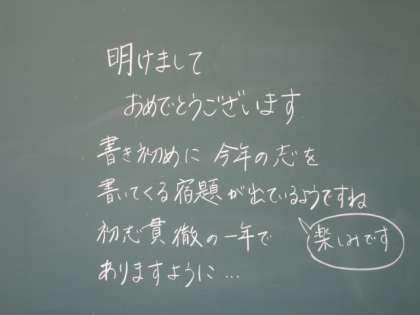 明けまして
おめでとうございます
書き初めに 今年の志を
書いてくる宿題が出ているようですね
楽しみです
初志貫徹の一年で
ありますように…